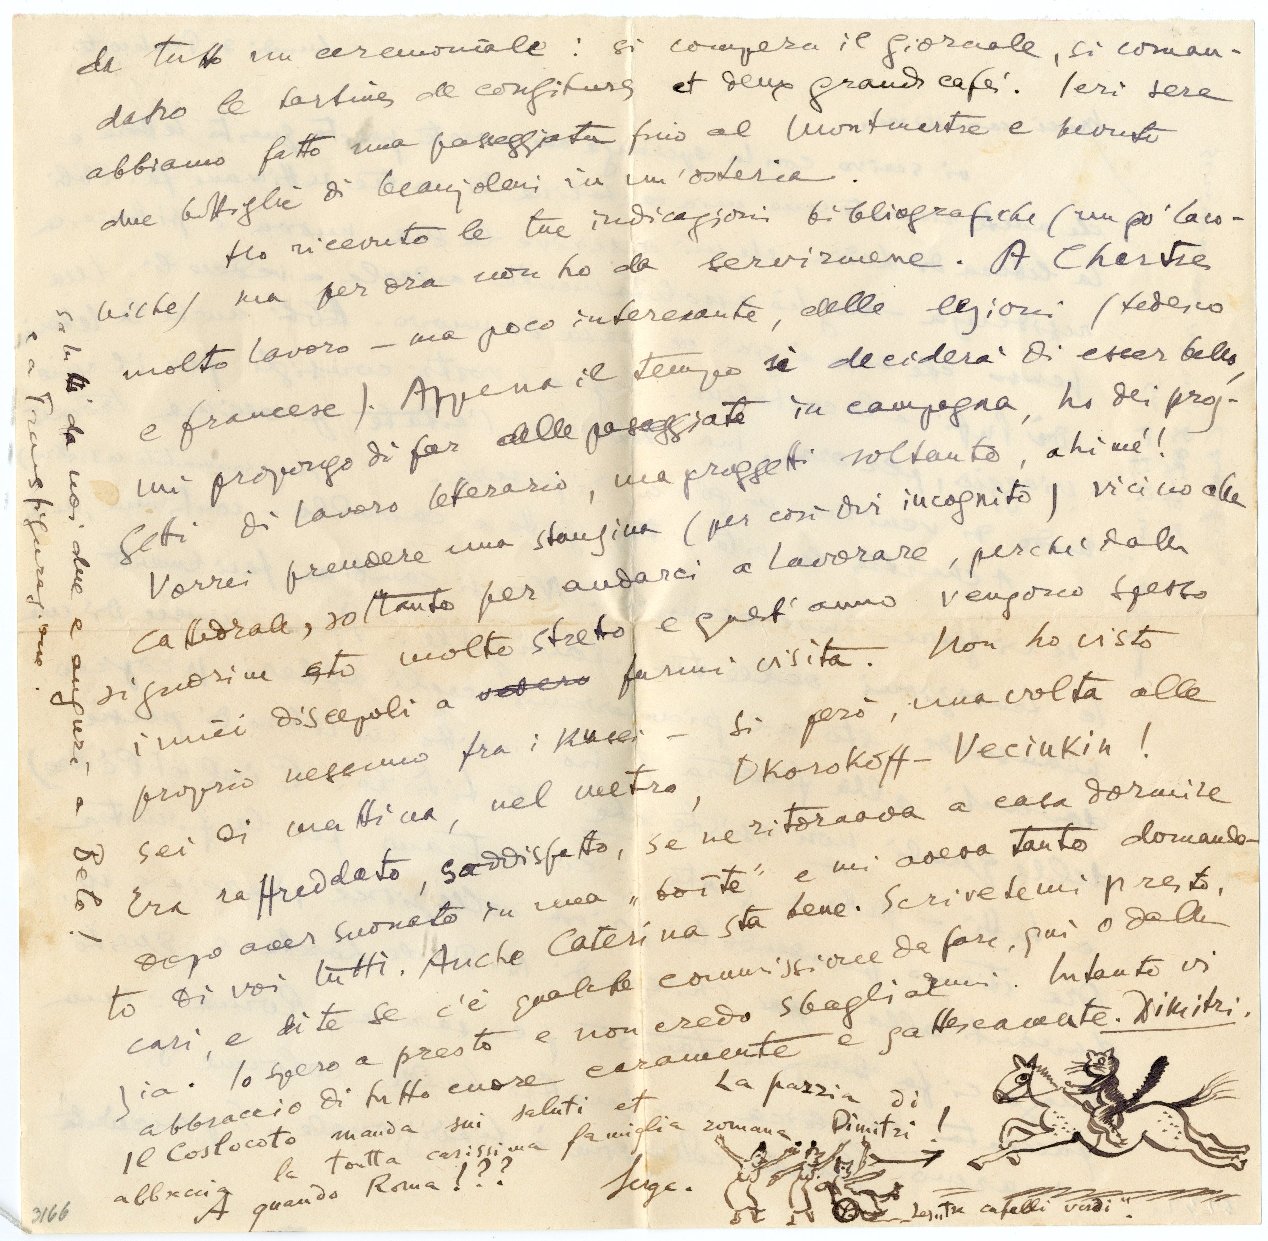 da tutto un ceremoniale: si compera il giornale, si coman-
dano le tartines de confitures et deux grands cafés. Ieri sera
abbiamo fatto una passeggiata fino al Montmartre e bevuto
due bottiglie di beaujolais in un'osteria.
Ho ricevuto le tue indicazioni bibliografiche (un po' laco-
niche) ma per ora non ho da servirmene. A Chartres
molto lavoro – ma poco interessante, delle lezioni (tedesco
e francese). Appena il tempo si deciderà di esser bello,
mi propongo di far delle passeggiate in campagna, ho dei proj-
getti di lavoro letterario, ma proggetti soltanto, ahimé!
Vorrei prendere una stanzina (per così dir incognito) vicino alla
cattedrale, soltanto per andarci a lavorare, perché dalla
signorina sto molto stretto e quest'anno vengono spesso
i miei discepoli a vedere farmi visita. Non ho visto
proprio nessuno fra i Russi – si però, una volta alle
sei di mattina, nel metro, Okorokoff-Veciukin!
Era raffreddato, soddisfatto, se ne ritornava a casa dormire
dopo aver suonato in una „boîte" e mi aveva tanto domanda-
to di voi tutti. Anche Caterina sta bene. Scrivetemi presto,
cari, e dite se c'è qualche commissione da fare, qui o dalla
zia. Io spero a presto e non credo sbagliarmi. Intanto vi
abbraccio di tutto cuore caramente e gattescamente. Dimitri.
Il Costocoto manda sui saluti et
abbraccia la toutta carissima famiglia romana.
A quando Roma!??
Serge.
La pazzia di
Dimitri!
capelli verdi".
Saluti da noi due e auguri a Belà!
e a Transfigurazione.
3166